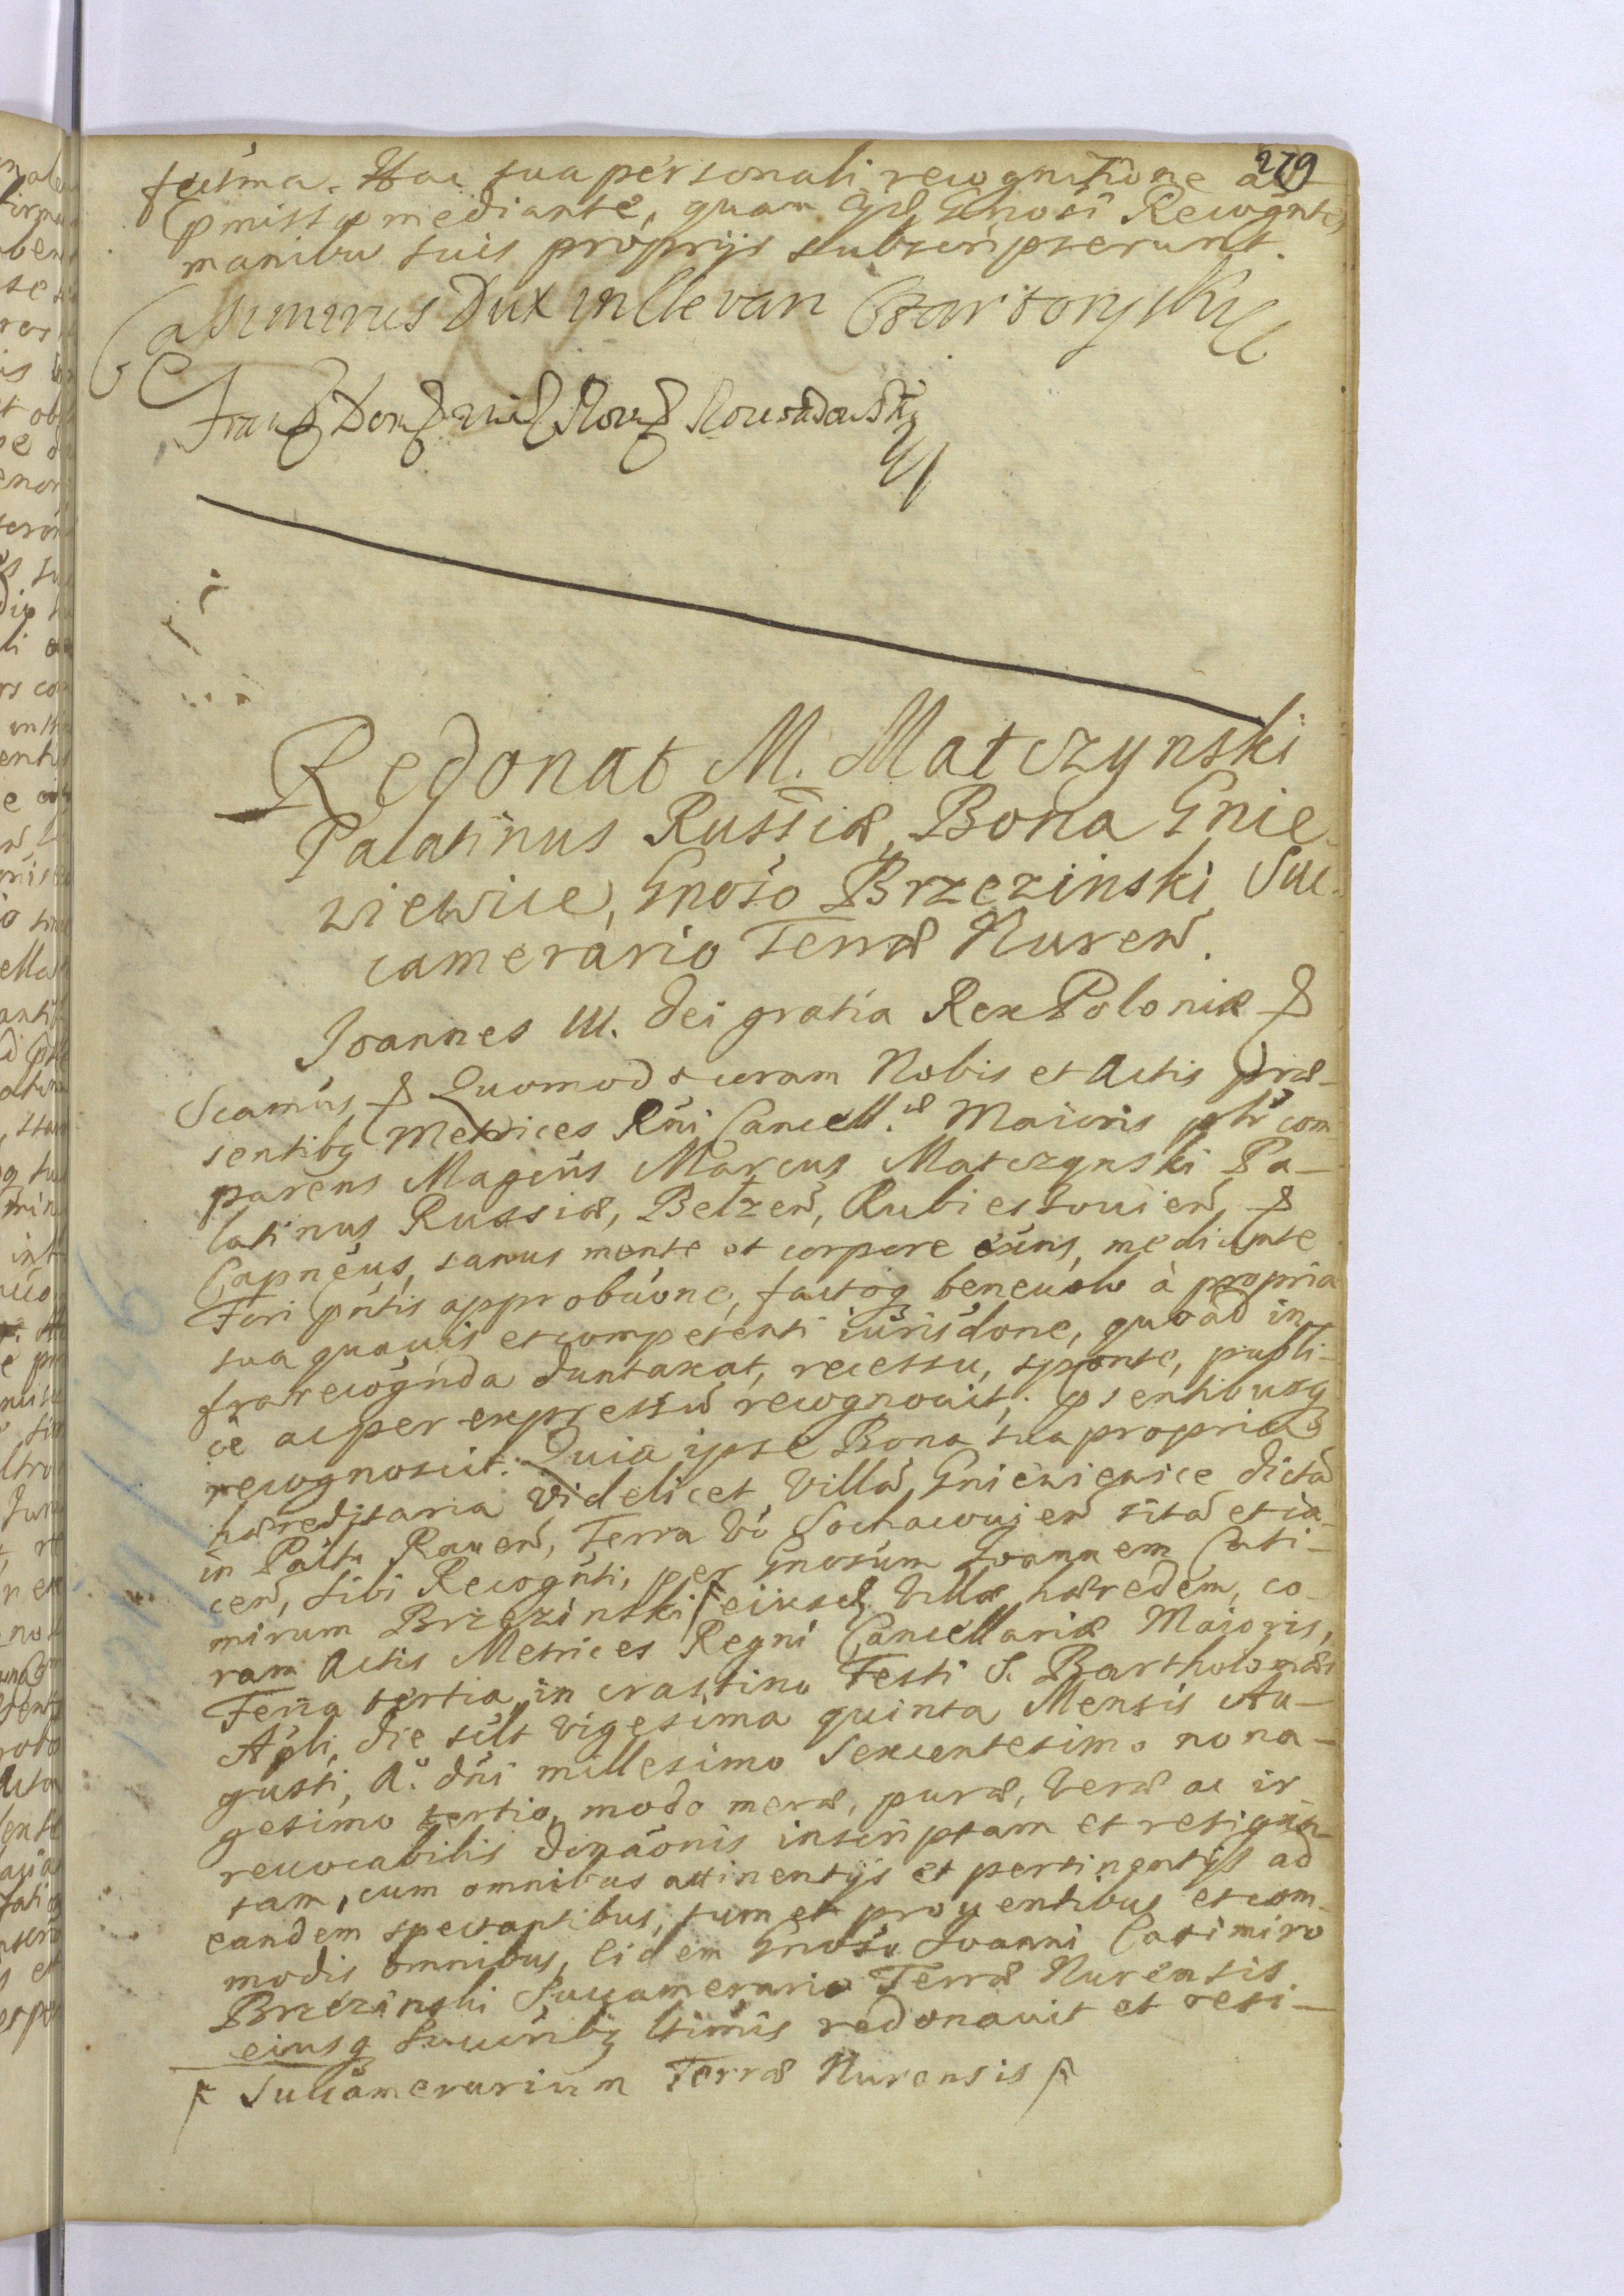 279
fusma. Hac sua personali recognitione ac
pmissa mediante, quam Gnosi Recognтes
manibus suis proprijs subscripserunt.
Casimirus Dux in Clevan Czartoryski
Redonat M. Matczynski
Palatinus Russiæ, Bona Gnie-
wiewice, Gnoso Brzezinski Suc-
camerario Terræ Nuren.
Joannes III. Dei gratia Rex Poloniæ
Quomodo coram Nobis et Actis præ-
sentibq Metrices Rni Cancell.æ Maioris plr com
parens Magcus Marcus Matczynski Pa-
latinus Russiæ, Belzen, Rubiessouien,
Capneus, sanus mente et corpore exens, mediante
Fori pntis approbaone, factoq beneuolo à propria
sua quauis et competenti iurisdone, quoad in-
fra recognda duntaxat, recessu, sponte, publi-
ce ac per expressu recognouit, psentibusq
recognoscit: Quia ipse Bona sua propria
hæreditaria videlicet Villa Gniewiewice dicta
in Palttu Rauen, Terra vo Sochacouien sita et ia-
cen, sibi Recognti, per Gnosum Joannem Casi-
mirum Brzezinski eiusd Villæ hæredem, co-
ram Actis Metrices Regni Cancellariæ Maioris,
Feria tertia in crastino Festi S. Bartholomæi
Apli, die silt vigesima quinta Mensis Au-
gusti, A.o dni millesimo sexcentesimo nona-
gesimo tertio, modo meræ, puræ, veræ ac ir-
reuocabilis donaonis inscriptam et resigna-
tam, cum omnibus attinentijs et pertinentijs ad
eandem spectantibus, tum et prouentibus et com-
modis omnibus, eidem Gnoso Joanni Casimiro
Brzezinski Succamerario Terræ Nurensis
eiusq Succribq ltimis redonauit et resi-
Succamerarium Terræ Nurensis